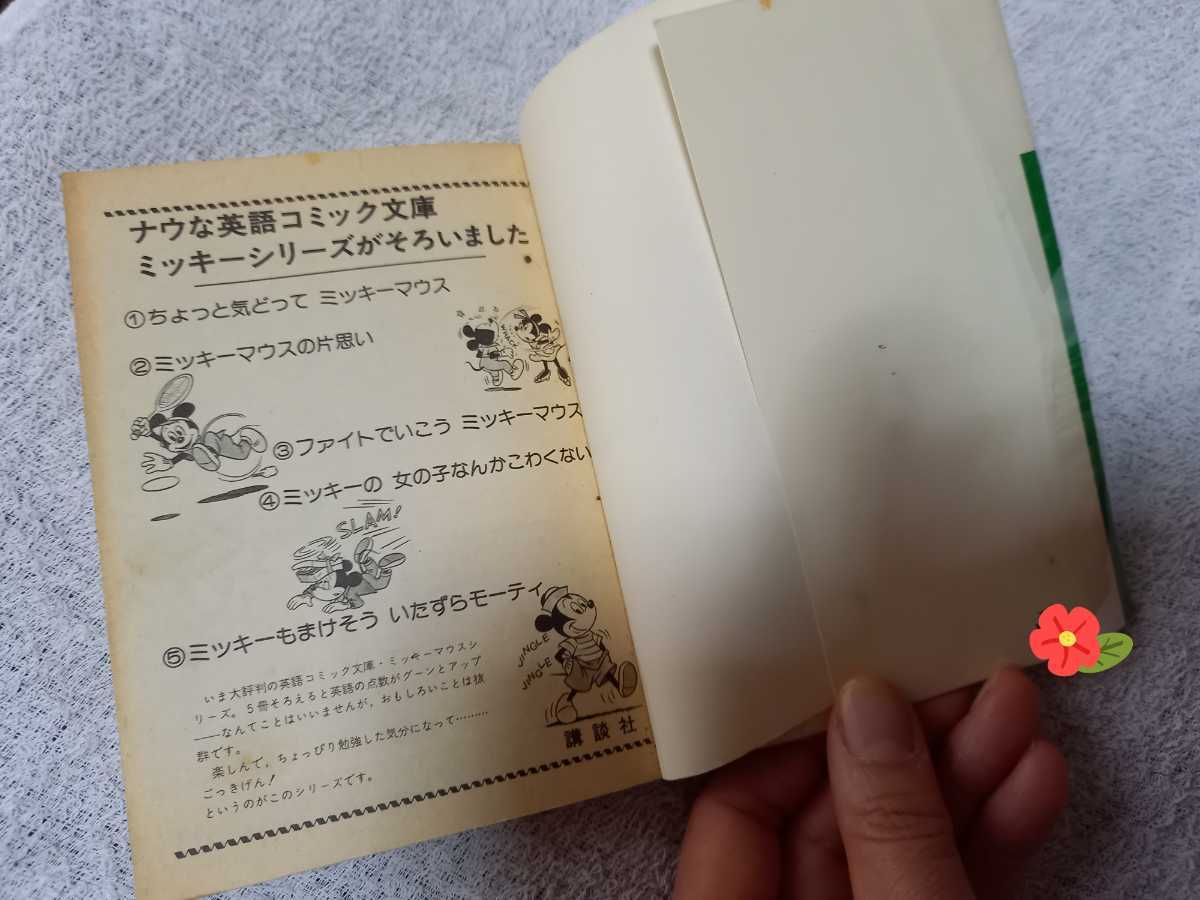 ナウな英語コミック文庫
ミッキーシリーズがそろいました
①ちょっと気どって ミッキーマウス
②ミッキーマウスの片思い
③ファイトでいこう ミッキーマウス
④ミッキーの 女の子なんかこわくない
SLAM!
⑤ミッキーもまけそう いたずらモーティ
JINGLE
JINGLE
いま大評判の英語コミック文庫・ミッキーマウスシ
リーズ。5冊そろえると英語の点数がグーンとアップ
――なんてことはいいませんが、おもしろいことは抜
群です。
楽しんで、ちょっぴり勉強した気分になって………
ごっきげん!
というのがこのシリーズです。
講談社